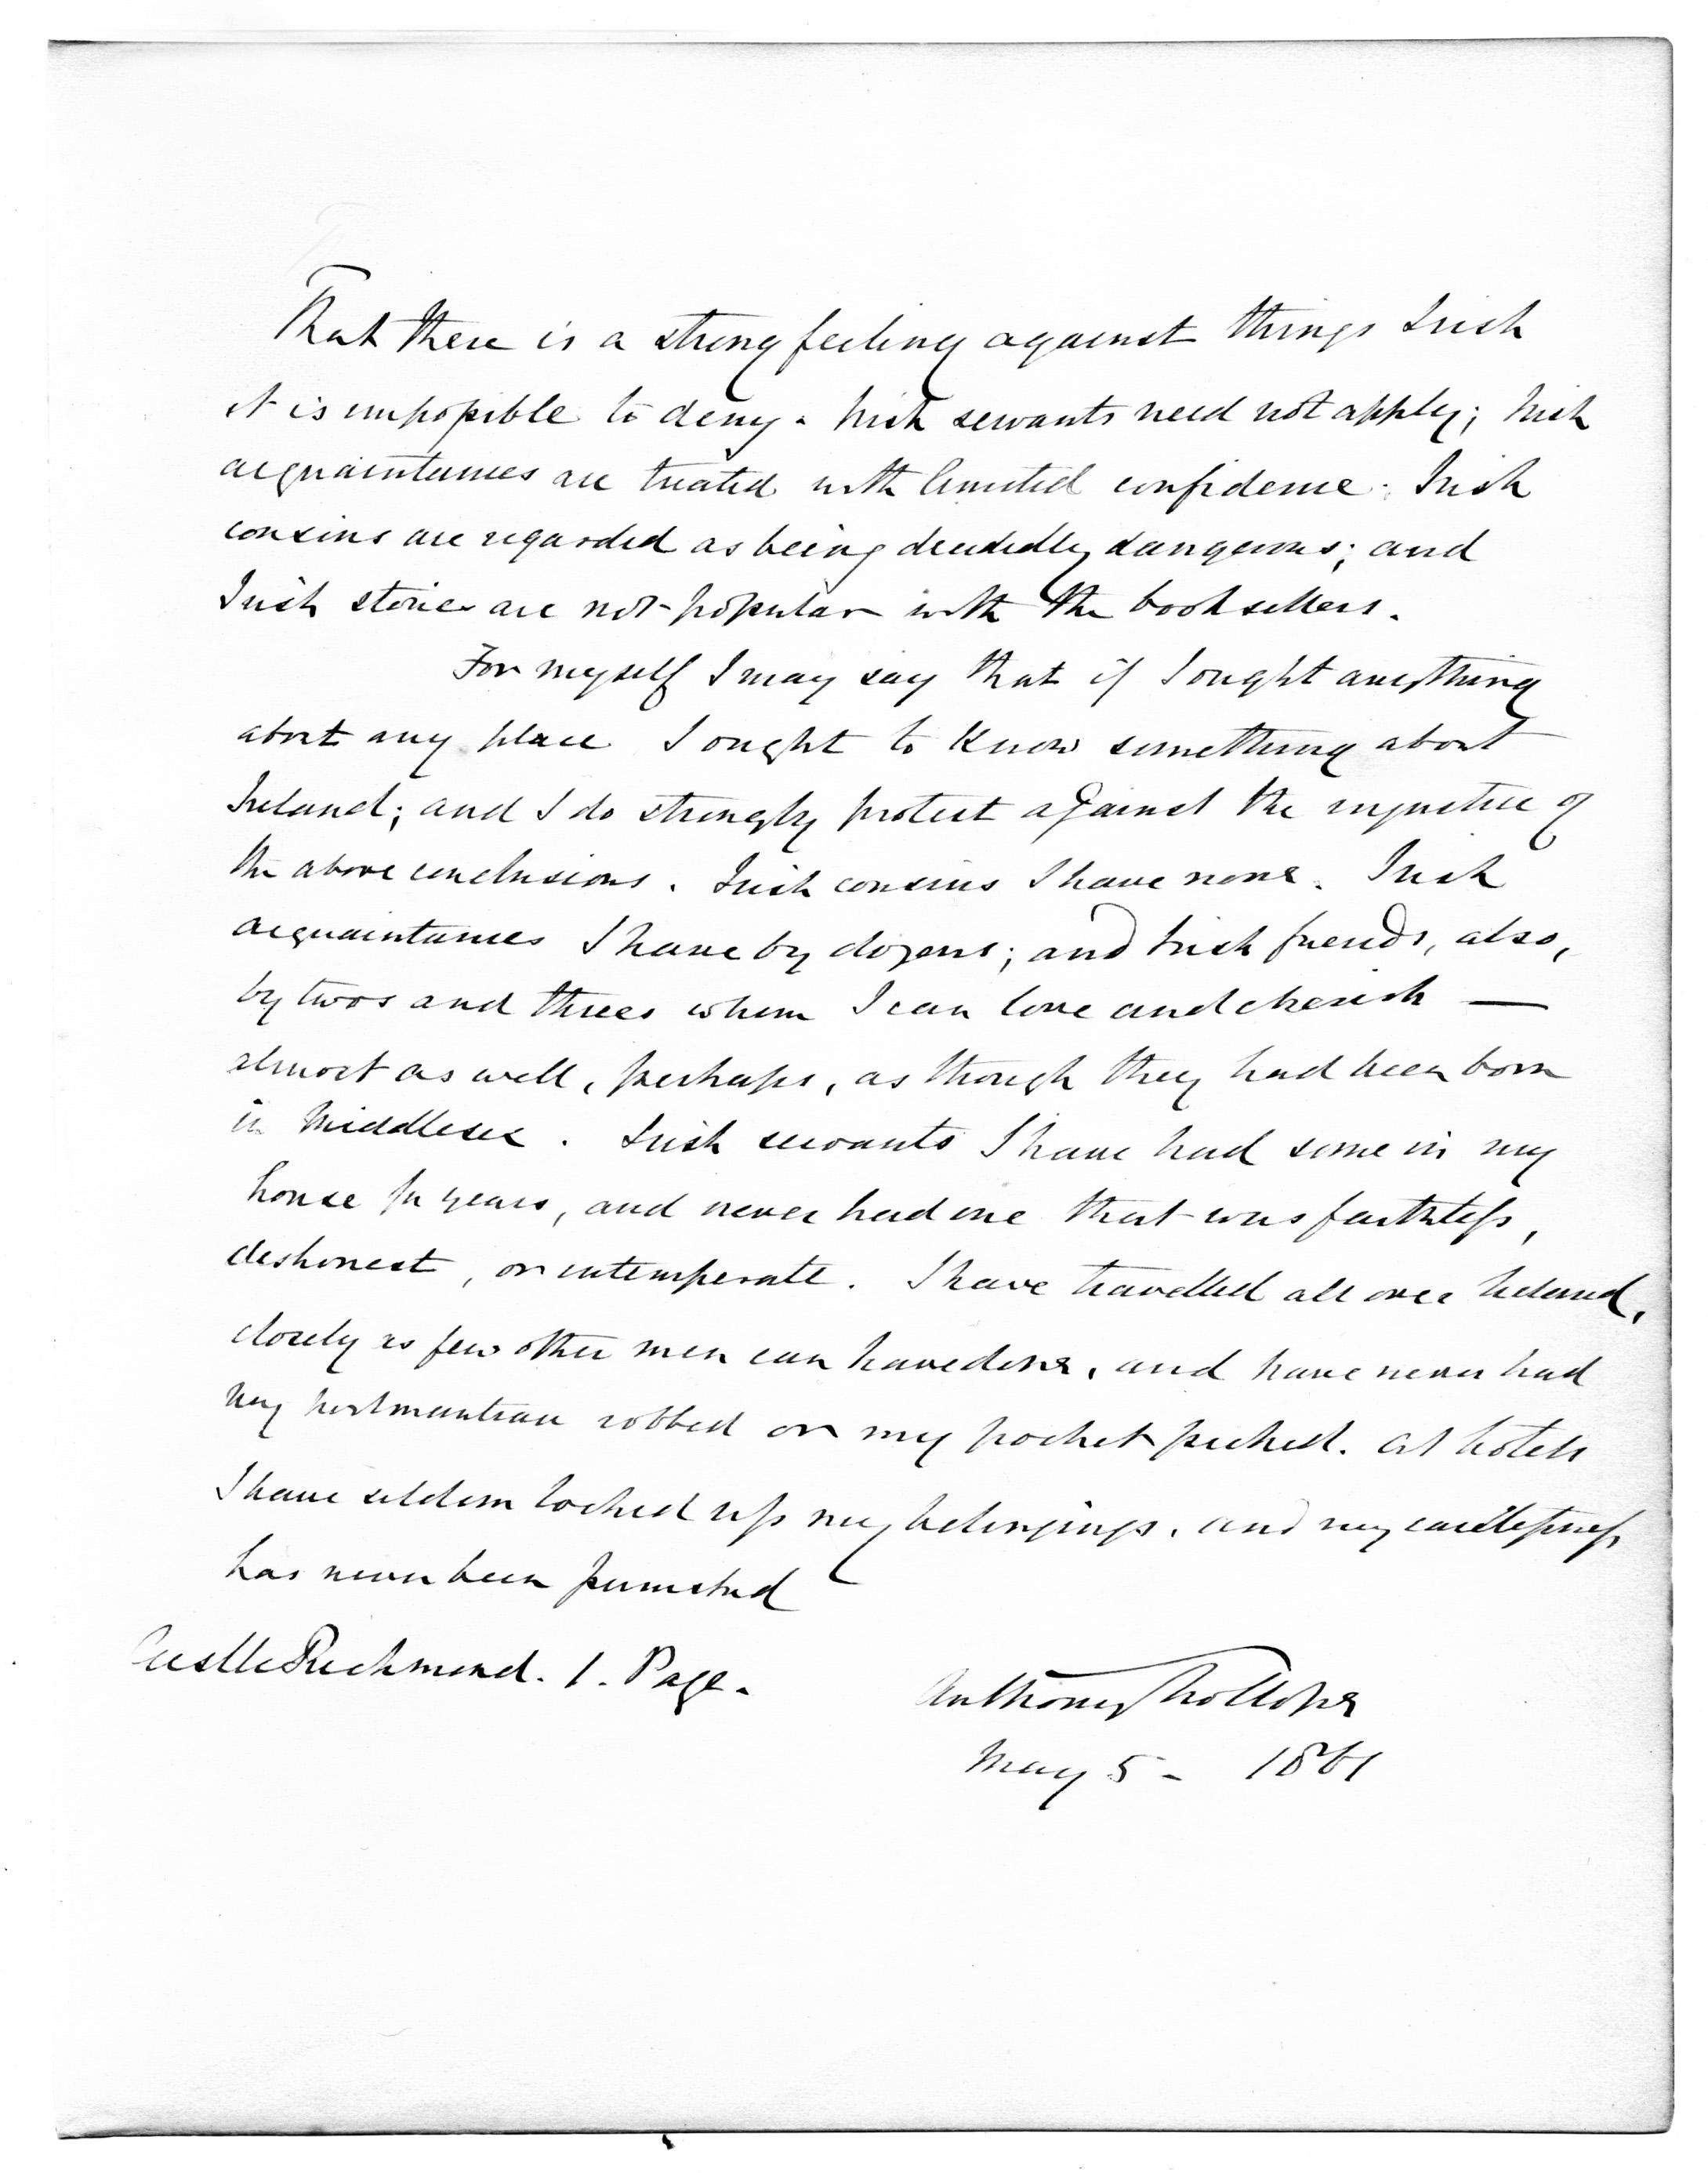 That there is a strong feeling against things Irish
it is impossible to deny. Irish servants need not apply; Irish
acquaintances are treated with limited confidence; Irish
cousins are regarded as being decidedly dangerous; and
Irish stories are not popular with the booksellers.
For myself I may say that if I ought anything
about any place I ought to know something about
Ireland; and I do strongly protest against the injustice of
the above conclusions. Irish cousins I have none. Irish
acquaintances I have by dozens; and Irish friends, also,
by twos and threes whom I can love and cherish —
almost as well, perhaps, as though they had been born
in Middlesex. Irish servants I have had some in my
house for years, and never had one that was faithless,
dishonest, or intemperate. I have travelled all over Ireland,
closely as few other men can have done, and have never had
my portmanteau robbed or my pocket picked. At hotels
I have seldom locked up my belongings, and my carelessness
has never been punished
Castle Richmond. 1. Page.
Anthony Trollope
May 5 - 1861